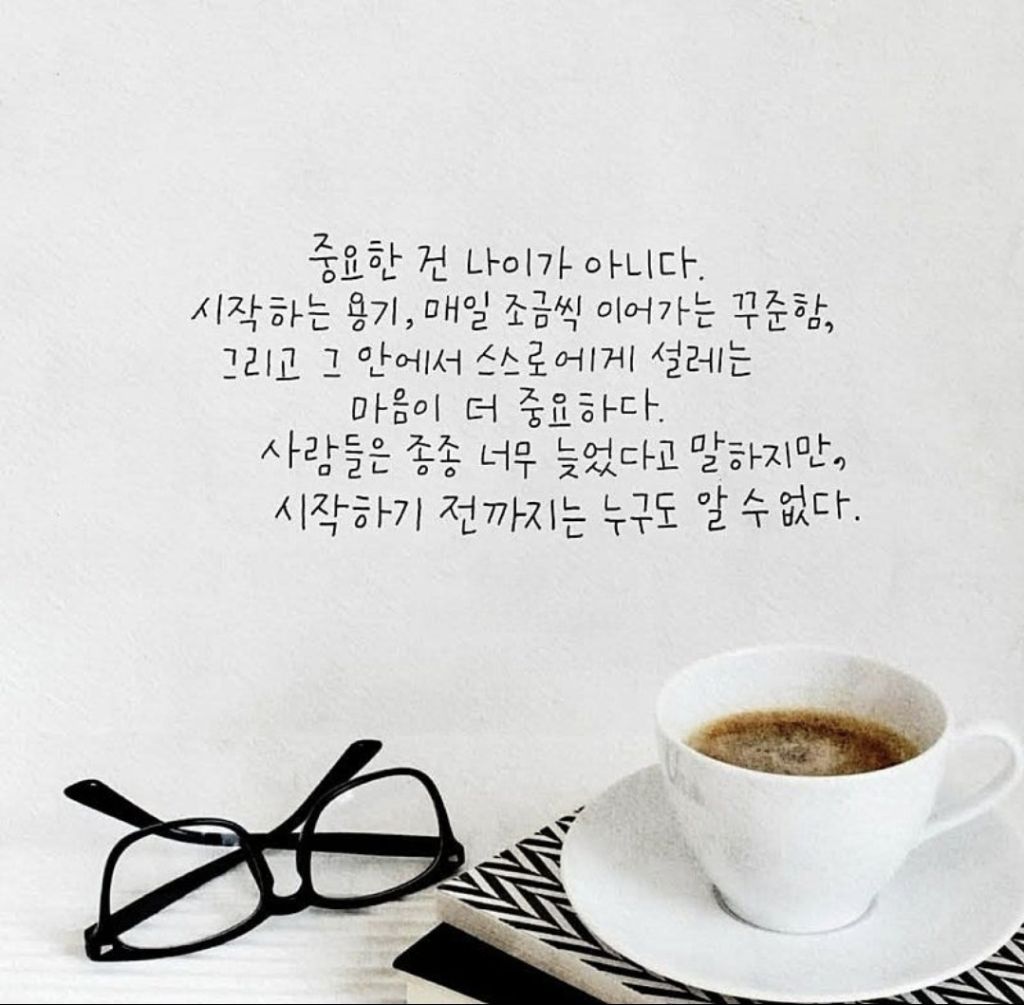 중요한 건 나이가 아니다.
시작하는 용기, 매일 조금씩 이어가는 꾸준함,
그리고 그 안에서 스스로에게 설레는
마음이 더 중요하다.
사람들은 종종 너무 늦었다고 말하지만,
시작하기 전까지는 누구도 알 수 없다.